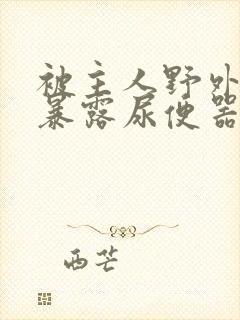 被主人野外
暴露尿便器
西芒